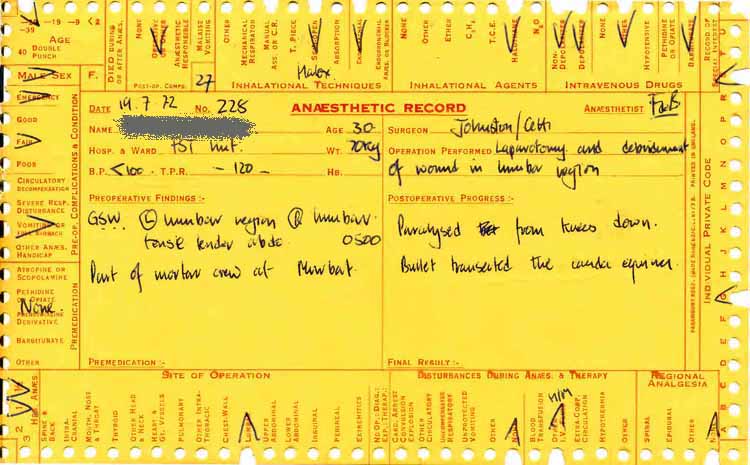 -39 -19 -9 <2
AGE
40 DOUBLE PUNCH
MALE SEX F.
DIED DURING OR AFTER ANÆS.
NONE
OPERATIVE
ANÆSTHETIC RESPONSIBLE
MALAISE VOMITING
OTHER
POST-OP. COMPS.
27
MECHANICAL RESPIRATOR
MANUAL ASS. OR C.R.
T. PIECE
ABSORPTION
ENDOBRONCHIAL ANÆS. OR BLOCKER
INHALATIONAL TECHNIQUES
Halox.
NONE
OTHER
ETHER
C₃H₆
T.C.E.
HALOTHANE
N₂O
INHALATIONAL AGENTS
NON-DEPOLARISER
DEPOLARISER
NONE
OTHER
HYPOTENSIVE
PETHIDINE OR OPIATE
BARBITURATE
INTRAVENOUS DRUGS
RECORD OF SPECIAL INTEREST
DATE 19.7.72 NO. 228
ANÆSTHETIC RECORD
ANÆSTHETIST
NAME AGE 30
SURGEON Johnston/
HOSP. & WARD FST WT. 70kg
OPERATION PERFORMED Laparotomy and debridement
B.P. <100 . T.P.R. - 120 - HB.
of wound in lumbar region
PREOPERATIVE FINDINGS :-
POSTOPERATIVE PROGRESS :-
GSW (L) lumbar region
tense tender abdo. 0500
Paralysed from knees down.
Part of mortar crew at Mirbat.
Bullet transected the cauda equina.
PREMEDICATION :-
FINAL RESULT :-
EMERGENCY
GOOD
FAIR
POOR
CIRCULATORY DECOMPENSATION
SEVERE RESP. DISTURBANCE
VOMITING OR FULL STOMACH
OTHER ANÆS. HANDICAP
PRE-OP. COMPLICATIONS & CONDITION
ATROPINE OR SCOPOLAMINE
PETHIDINE OR OPIATE
None.
DERIVATIVE
BARBITURATE
OTHER
PREMEDICATION
INDIVIDUAL PRIVATE CODE
PRINTED IN ENGLAND.
SITE OF OPERATION
DISTURBANCES DURING ANÆS. & THERAPY
REGIONAL ANALGESIA
HRS ANÆS.
SPINE & BACK
INTRA-CRANIAL
MOUTH, NOSE & THROAT
THYROID
OTHER HEAD & NECK
HEART & GT. VESSELS
PULMONARY
OTHER INTRA-THORACIC
CHEST-WALL
UPPER ABDOMINAL
LOWER ABDOMINAL
INGUINAL
PERINEAL
EXTREMITIES
NO OP.: DIAG.: EXP.: THERAP.:
CARD. ARREST CONVULSION EXPLOSION
OTHER CIRCULATORY
UNCOMPENSATED RESPIRATORY
UNPROTECTED VOMITING
OTHER
BLOOD TRANSFUSION
EXTRA-CORP. CIRCULATION
HYPOTHERMIA
OTHER
SPINAL
EPIDURAL
OTHER